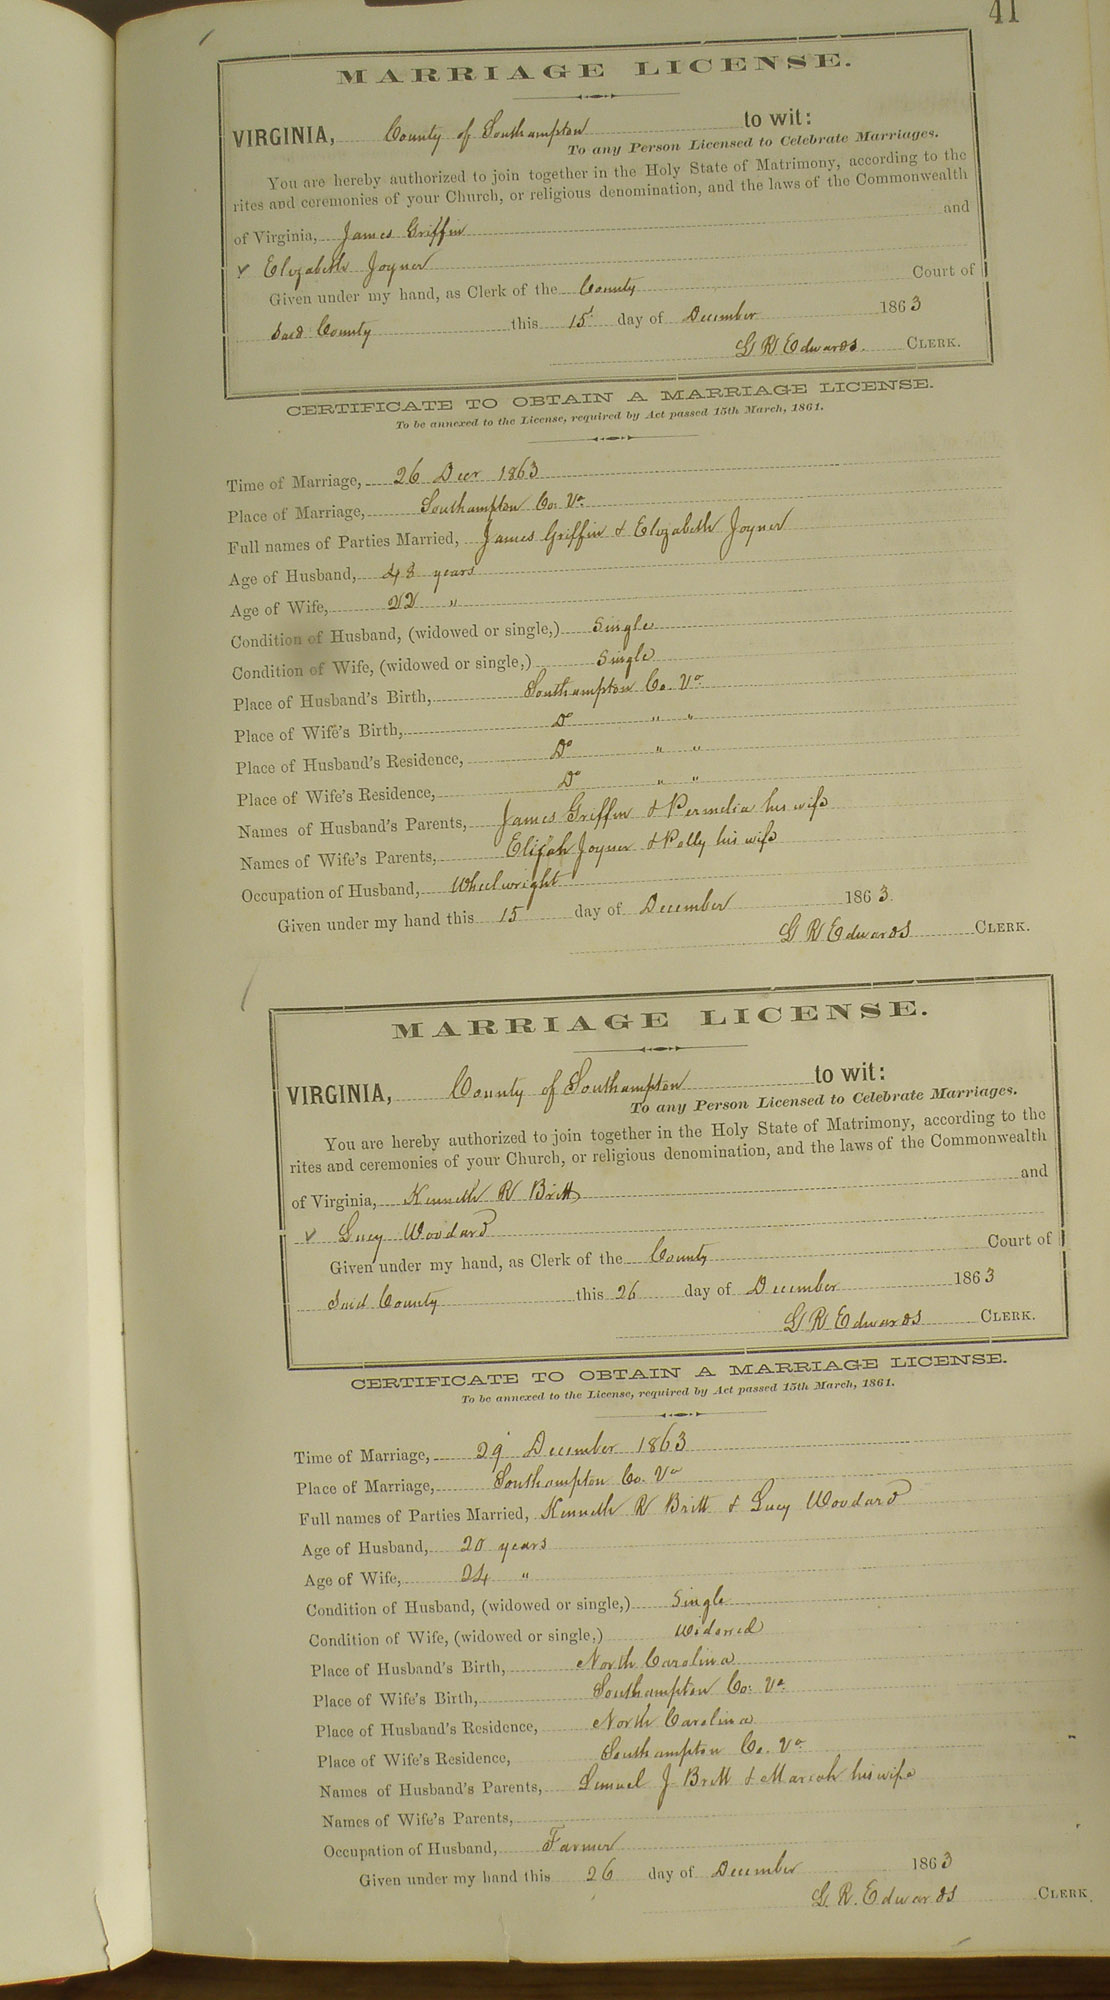 41
MARRIAGE LICENSE.
VIRGINIA, County of Southampton to wit:
To any Person Licensed to Celebrate Marriages.
You are hereby authorized to join together in the Holy State of Matrimony, according to the
rites and ceremonies of your Church, or religious denomination, and the laws of the Commonwealth
of Virginia, James Griffin and
Elizabeth Joyner
Given under my hand, as Clerk of the County Court of
Said County this 15 day of December 1863
G R Edwards CLERK.
CERTIFICATE TO OBTAIN A MARRIAGE LICENSE.
To be annexed to the License, required by Act passed 15th March, 1861.
Time of Marriage, 26 Decr 1863
Place of Marriage, Southampton Co. Va
Full names of Parties Married, James Griffin & Elizabeth Joyner
Age of Husband, 48 years
Age of Wife, 22 "
Condition of Husband, (widowed or single,) Single
Condition of Wife, (widowed or single,) Single
Place of Husband's Birth, Southampton Co. Va
Place of Wife's Birth, Do " "
Place of Husband's Residence, Do " "
Place of Wife's Residence, Do " "
Names of Husband's Parents, James Griffin & Permelia his wife
Names of Wife's Parents, Elijah Joyner & Polly his wife
Occupation of Husband, Wheelwright
Given under my hand this 15 day of December 1863.
G R Edwards CLERK.
MARRIAGE LICENSE.
VIRGINIA, County of Southampton to wit:
To any Person Licensed to Celebrate Marriages.
You are hereby authorized to join together in the Holy State of Matrimony, according to the
rites and ceremonies of your Church, or religious denomination, and the laws of the Commonwealth
of Virginia, Kenneth R Britt and
Lucy Woodard
Given under my hand, as Clerk of the County Court of
Said County this 26 day of December 1863
G R Edwards CLERK.
CERTIFICATE TO OBTAIN A MARRIAGE LICENSE.
To be annexed to the License, required by Act passed 15th March, 1861.
Time of Marriage, 29 December 1863
Place of Marriage, Southampton Co. Va
Full names of Parties Married, Kenneth R Britt & Lucy Woodard
Age of Husband, 20 years
Age of Wife, 24 "
Condition of Husband, (widowed or single,) Single
Condition of Wife, (widowed or single,) Widowed
Place of Husband's Birth, North Carolina
Place of Wife's Birth, Southampton Co. Va
Place of Husband's Residence, North Carolina
Place of Wife's Residence, Southampton Co. Va
Names of Husband's Parents, Lemuel J Britt & Mariah his wife
Names of Wife's Parents,
Occupation of Husband, Farmer
Given under my hand this 26 day of December 1863
G. R. Edwards CLERK